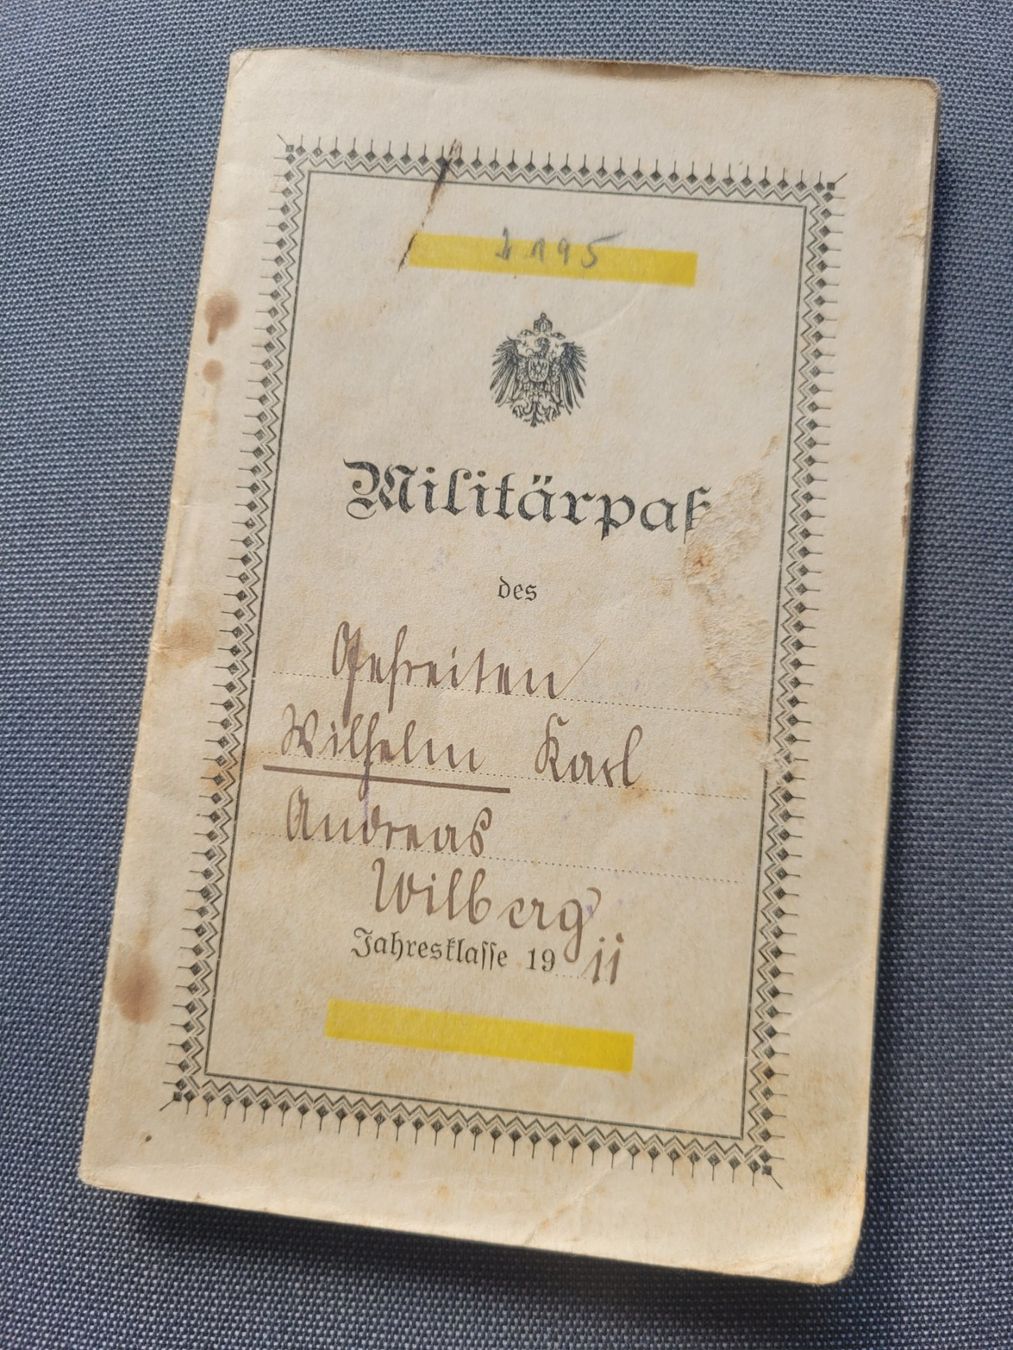 1195
Militärpaß
des
Gefreiten
Wilhelm Karl
Andreas
Wilberg
Jahresklasse 19 11